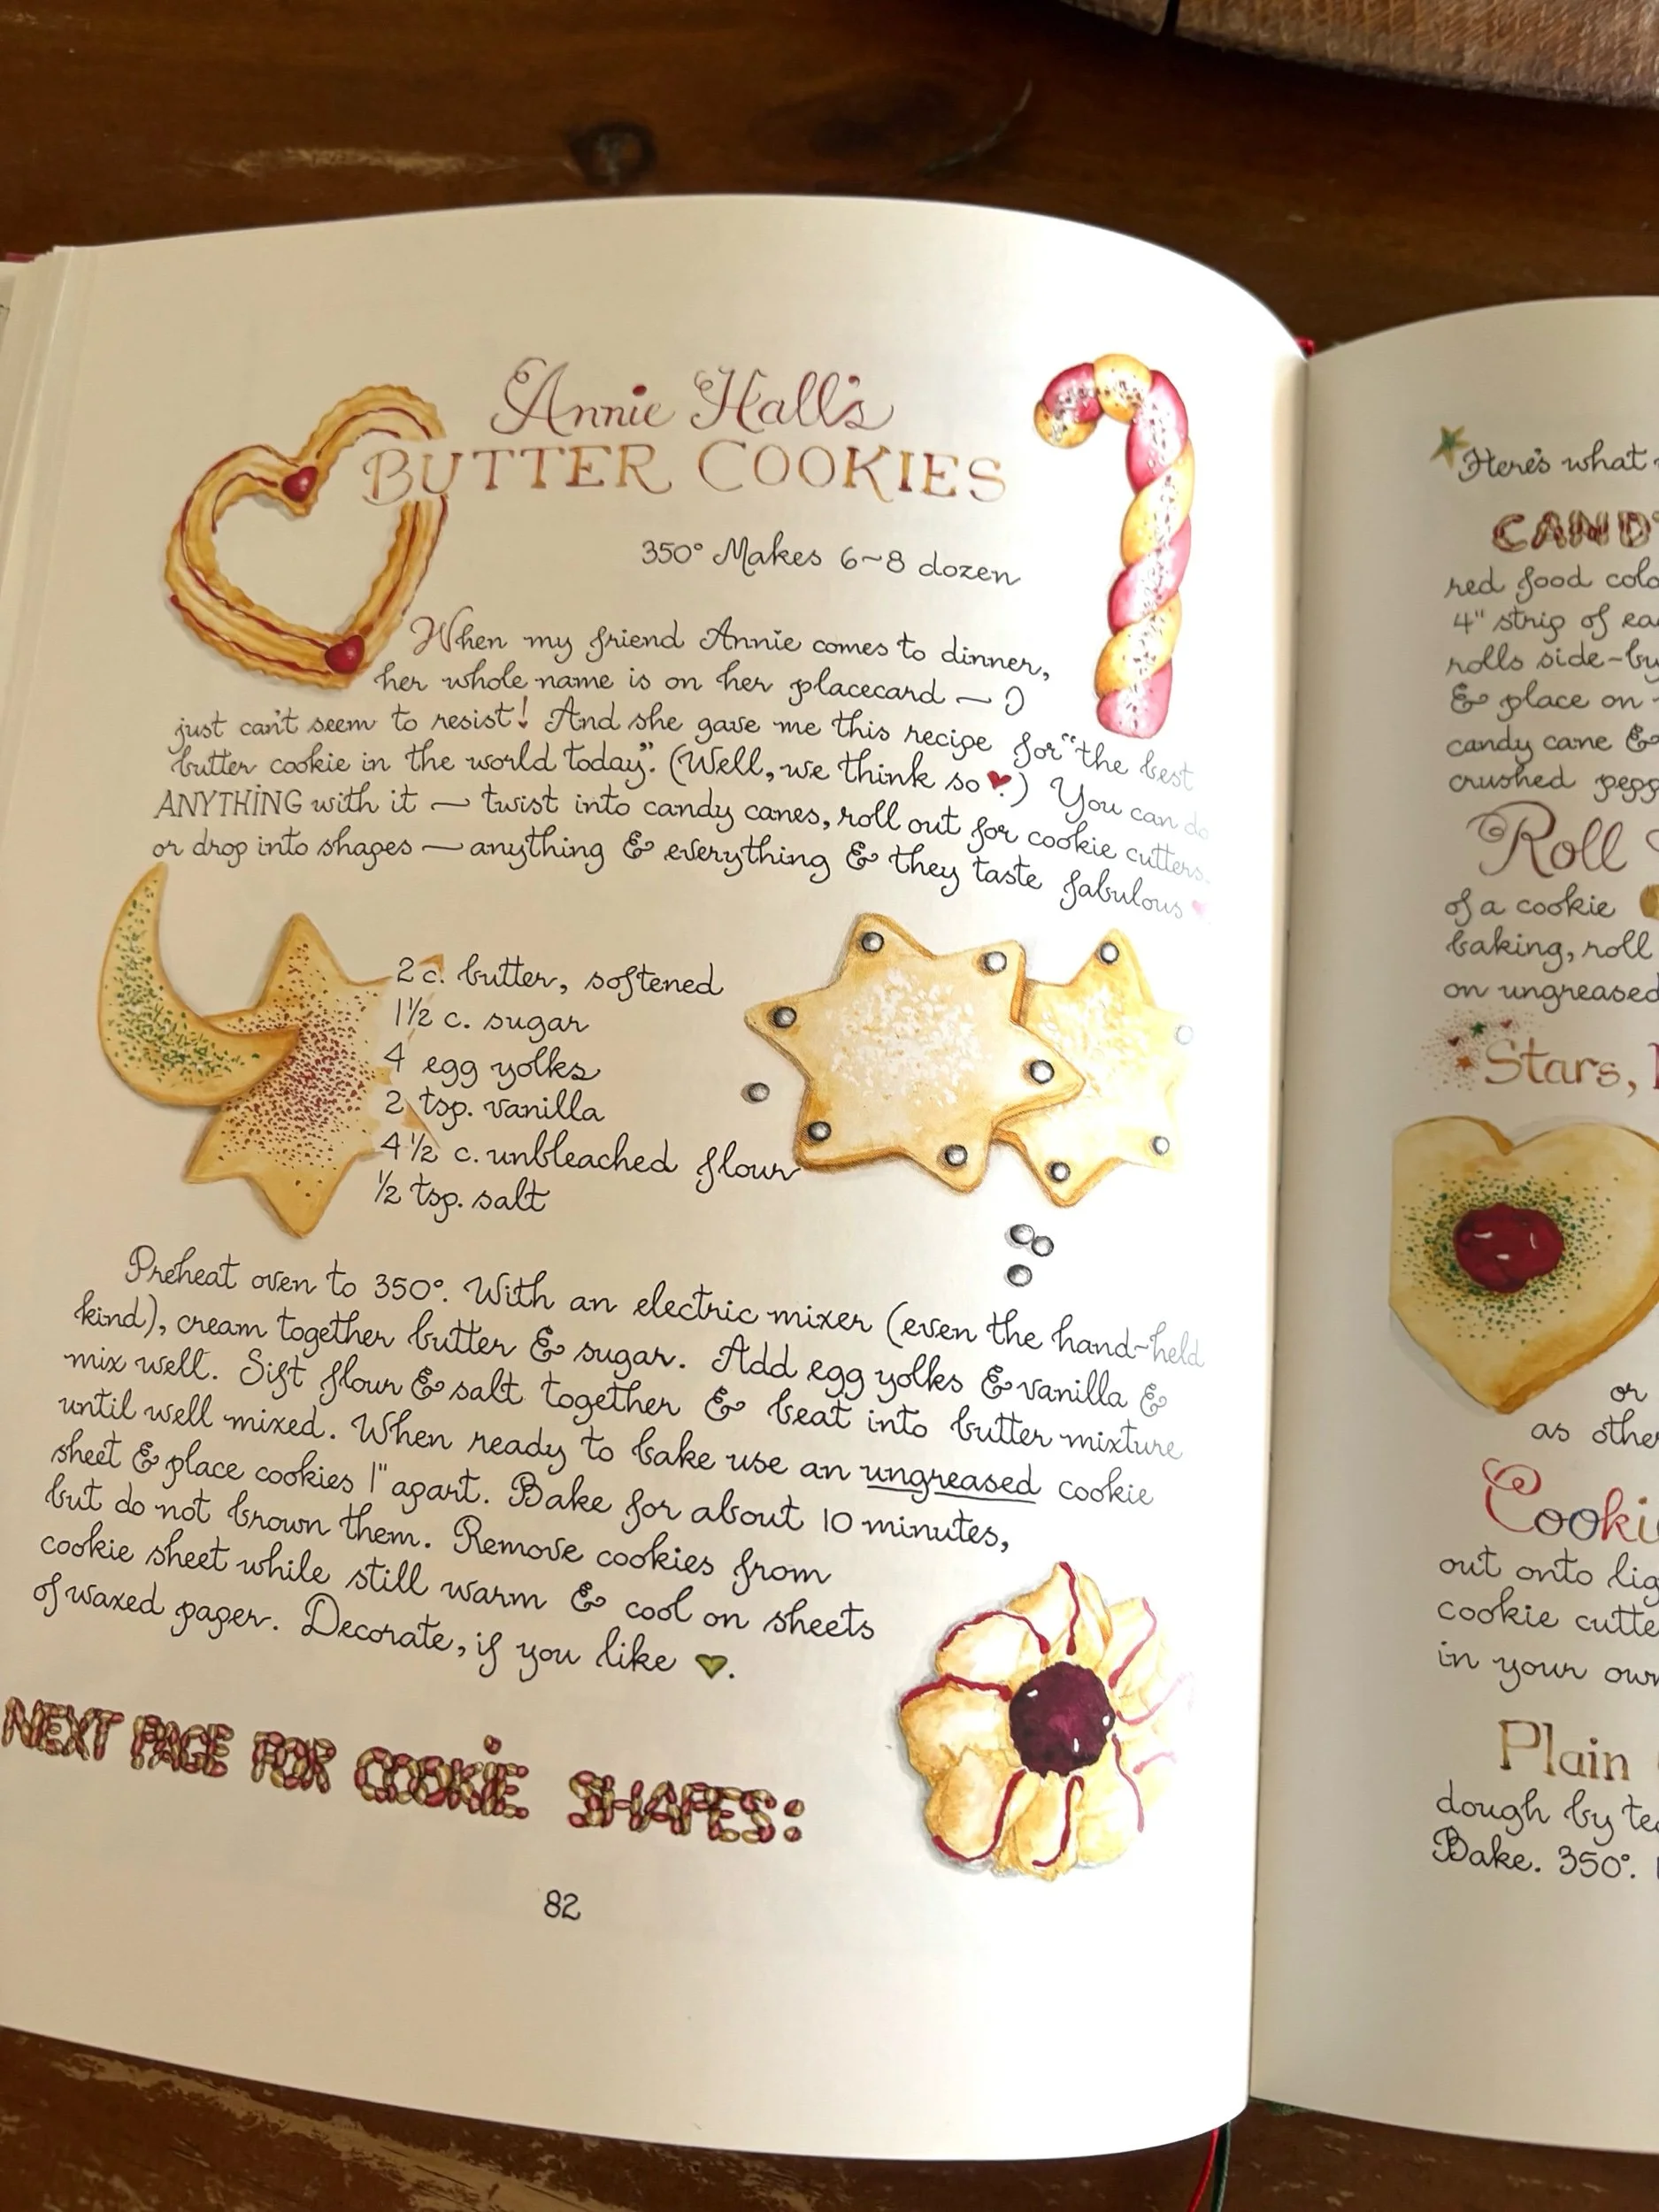 Annie Hall's
BUTTER COOKIES
350° Makes 6~8 dozen
When my friend Annie comes to dinner,
her whole name is on her placecard — I
just can't seem to resist! And she gave me this recipe for "the best
butter cookie in the world today". (Well, we think so ♥.) You can do
ANYTHING with it — twist into candy canes, roll out for cookie cutters,
or drop into shapes — anything & everything & they taste fabulous ♥
2 c. butter, softened
1½ c. sugar
4 egg yolks
2 tsp. vanilla
4 ½ c. unbleached flour
½ tsp. salt
Preheat oven to 350°. With an electric mixer (even the hand-held
kind), cream together butter & sugar. Add egg yolks & vanilla &
mix well. Sift flour & salt together & beat into butter mixture
until well mixed. When ready to bake use an ungreased cookie
sheet & place cookies 1" apart. Bake for about 10 minutes,
but do not brown them. Remove cookies from
cookie sheet while still warm & cool on sheets
of waxed paper. Decorate, if you like ♥.
NEXT PAGE FOR COOKiE SHAPES:
82
Here's what
CANDY
red food
4" strip of
rolls side-by
& place on
candy cane &
crushed
Roll
of a cookie
baking, roll
on ungreased
Stars,
or
as
out onto
cookie
in your own
Plain
dough by
Bake. 350°.